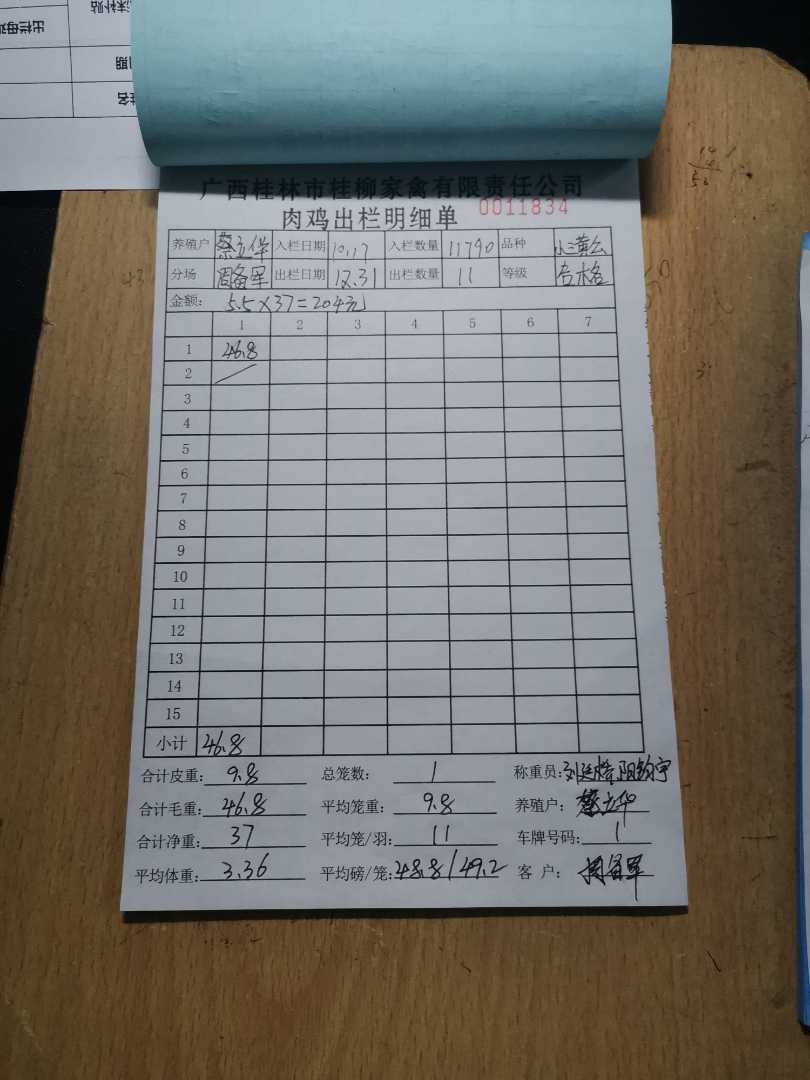 广西桂林市桂柳家禽有限责任公司
肉鸡出栏明细单 0011834
养殖户 蔡立华 入栏日期 10.17 入栏数量 11790 品种 小三黄公
分场 周备军 出栏日期 12.31 出栏数量 11 等级 合格
金额: 5.5×37=204元
1 2 3 4 5 6 7
1 46.8
2
3
4
5
6
7
8
9
10
11
12
13
14
15
小计 46.8
合计皮重: 9.8 总笼数: 1 称重员:
合计毛重: 46.8 平均笼重: 9.8 养殖户: 蔡立华
合计净重: 37 平均笼/羽: 11 车牌号码: 1
平均体重: 3.36 平均磅/笼: 48.8/49.2 客 户: 周备军